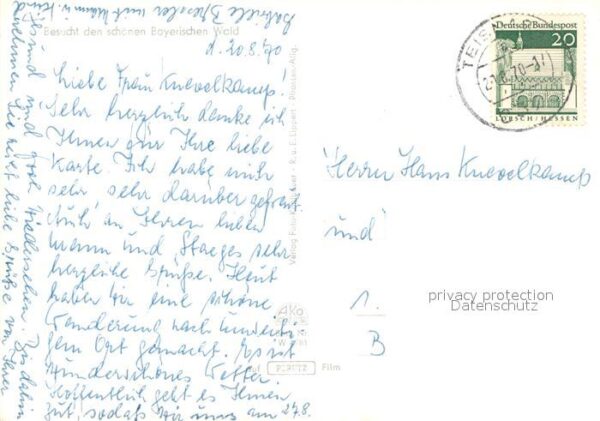 Besucht den schönen Bayerischen Wald
d. 20.8.70
Liebe Frau Knevelkamp!
Sehr herzlich danke ich
Ihnen für Ihre liebe
Karte. Ich habe mich
sehr sehr darüber gefreut
Auch an Herren lieben
Mann und Staeges sehr
herzliche Grüße. Heut
haben wir eine schöne
Wanderung nach
Ort gemacht. Es ist
Wunderschönes Wetter.
Hoffentlich geht es Ihnen
gut, sodaß wir uns am 27.8.
gesund und froh Wiedersehen. Bis dahin
nehmen Sie recht liebe Grüße von Ihrer
Gabriele mit Mann u. Kind
Verlag
PERUTZ Film
Deutsche Bundespost
20
LORSCH/HESSEN
TEISNACH
Herrn Hans Knevelkamp
und
1.
B
privacy protection
Datenschutz